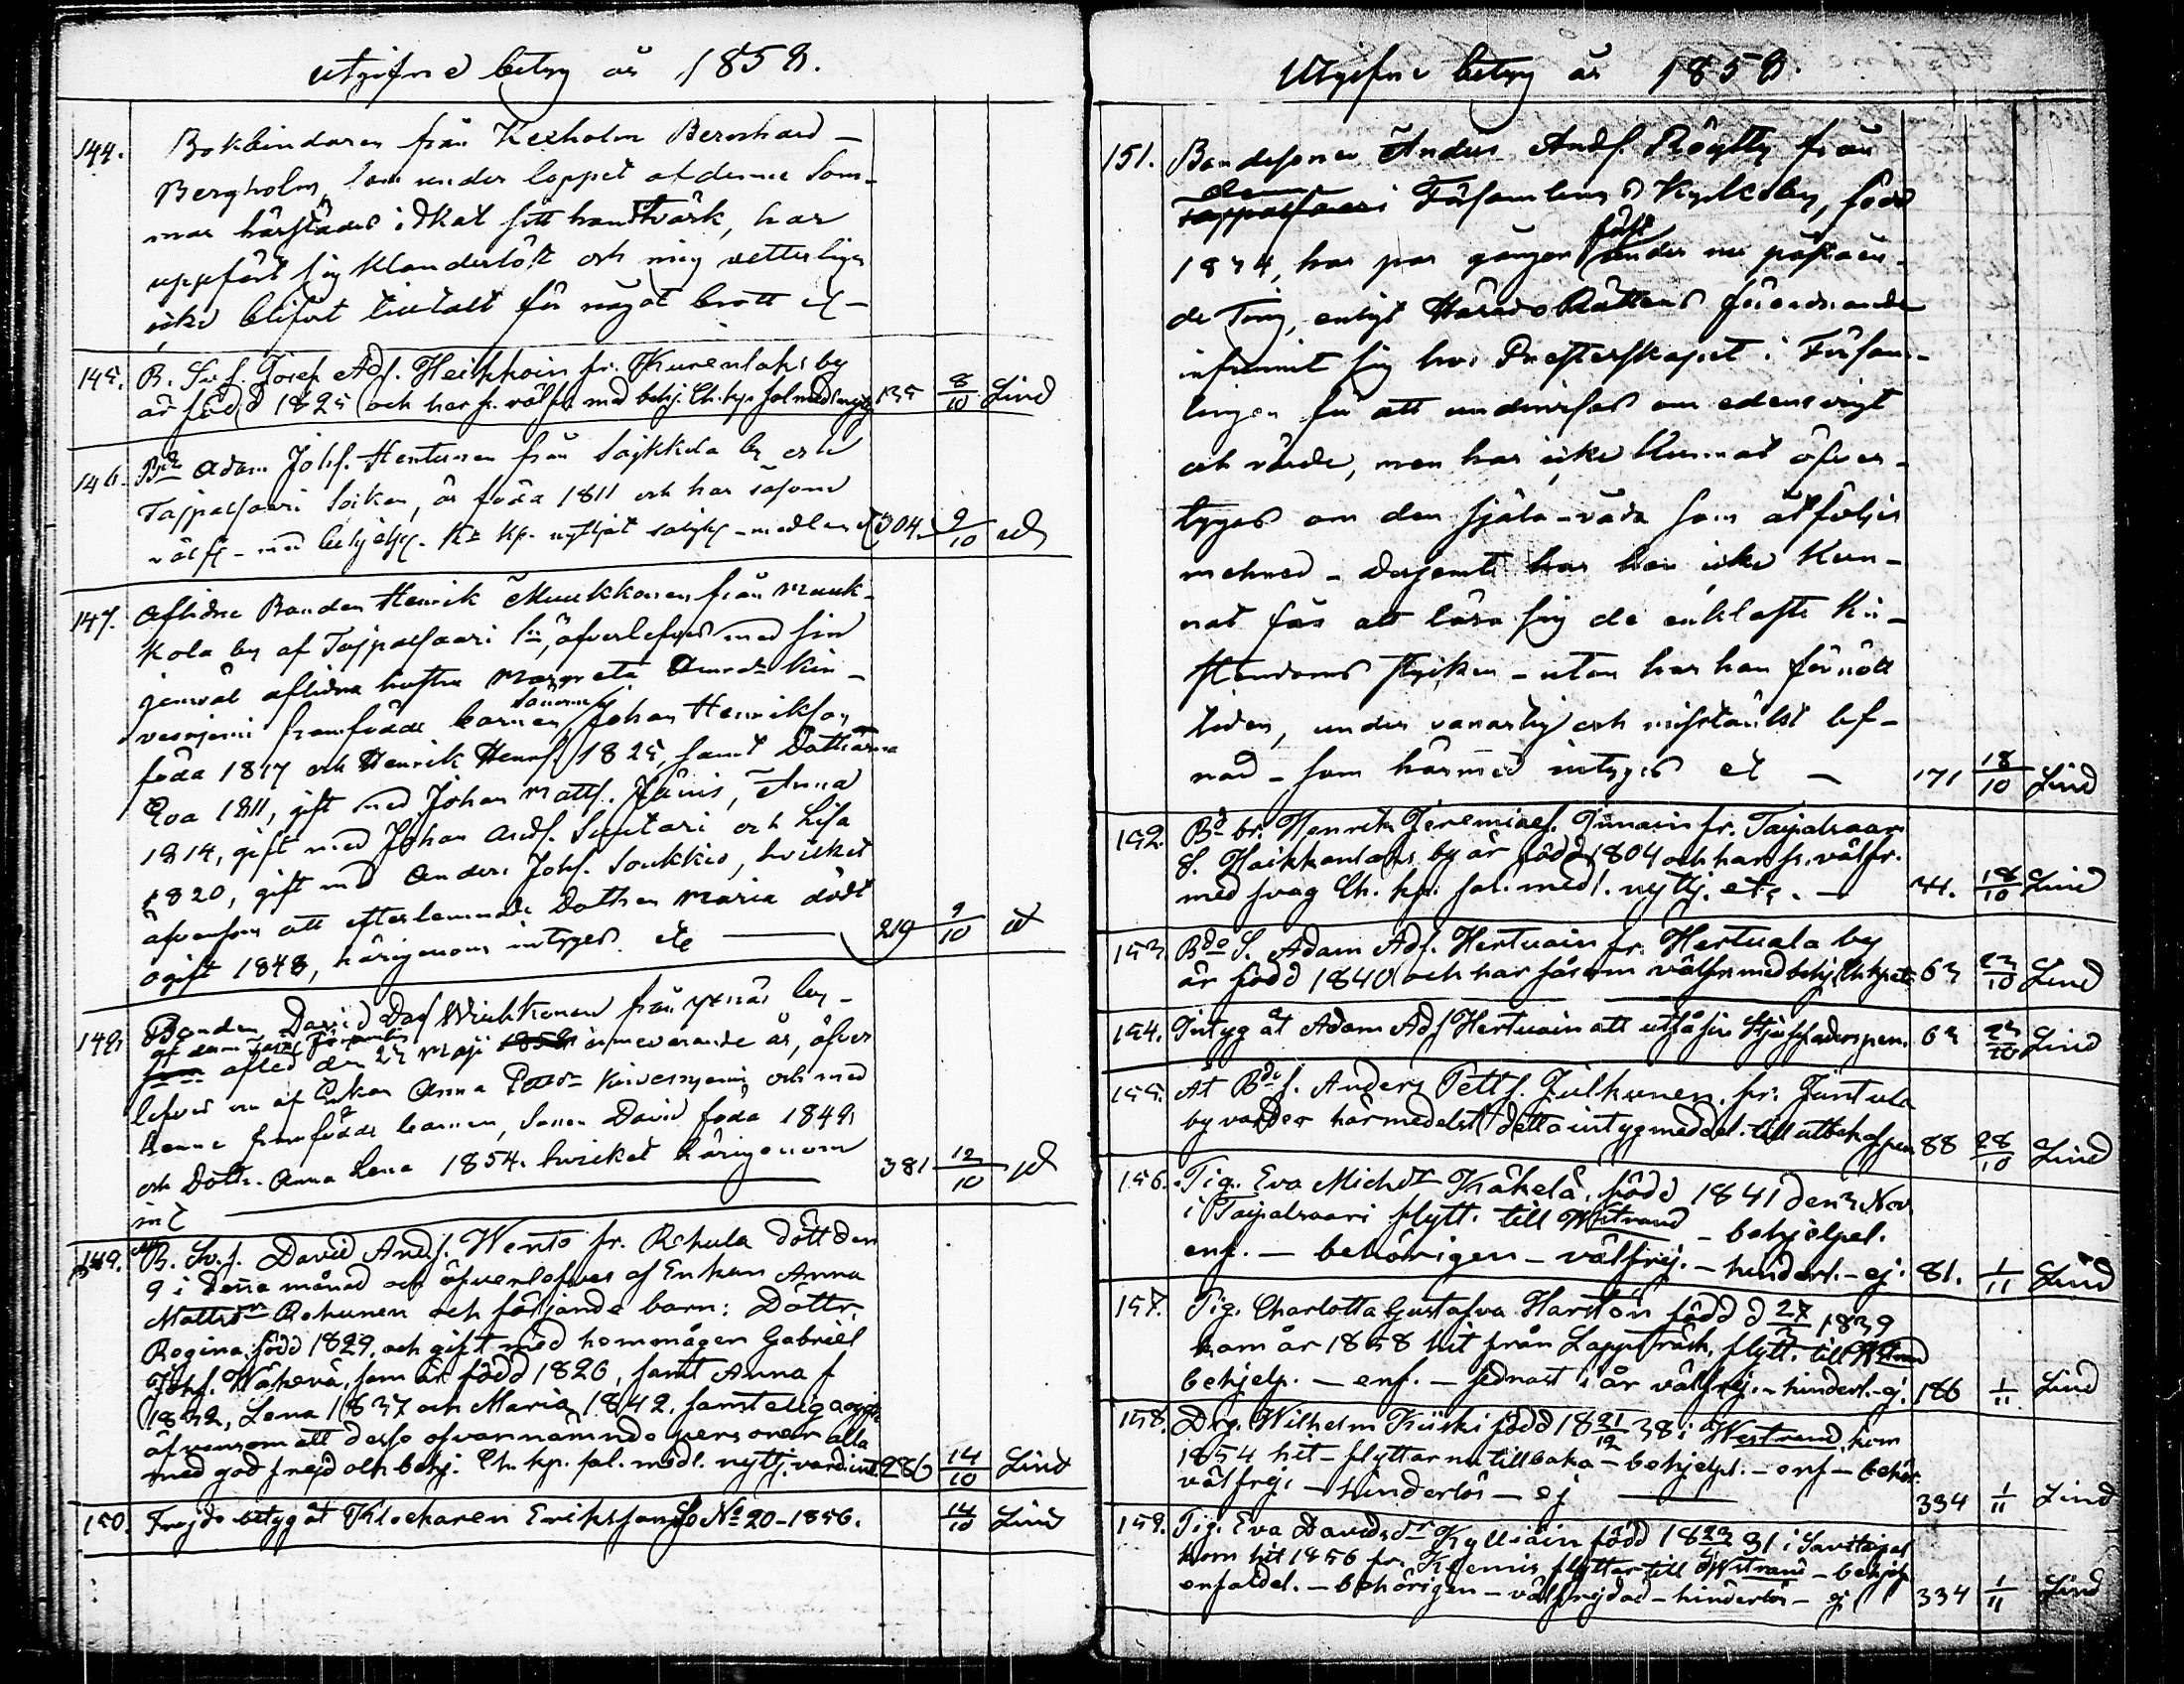 Utgifne betyg år 1858.
144. Bokbindaren från Kexholm Bernhard
Bergholm, som under loppet af denne Som-
mar härstädes idkat sitt handtvärk, har
uppfört sig klanderlöst och mig vetterligen
icke blifvit tilltalt för något brott etc
145. B. Sv. s. Josef Ads. Heikkoin fr. Kurenlaks by
är född 1825 och har fr. välfr. med behj. Ch. kp. sal. medl. nyttj 135 8/10 Lind
146. Bde Adam Johs. Hentunen från Saikkola by och
Taipalsaari Socken, är född 1811 och har såsom
välfr - med behjelpl. Kr. kp. nyttjat salighs - medlen etc 304 9/10 id
147. Aflidne Bonden Henrik Muukkonen från Muuk-
kola by af Taipalsaari Sn, öfverlefves med sin
jemväl aflidna hustru Margreta Amosdr Kin-
framfödde barnen, Sönerne Johan Henriksson
föda 1817 och Henrik Henrs. 1825, samt Döttrarna
Eva 1811, gift med Johan Matts. Anna
1814, gift med Johan Ands. Suutari och Lisa
1820, gift med Anders Johs. Soukkio, hvilket
äfvensom att efterlemnade Dottren Maria dödt
ogift 1848, härigenom intygas etc 219 9/10 id
148. Bonden David Dav. från by -
af denna Församling afled den 25 Maji 1858 innevarande år, öfver
lefves nu af Enkan Anna och med
henne framfödde barnen, Sonen David föda 1849
och Dottr. Anna Lena 1854. hvilket härigenom 381 12/10 id
int
149. B. Sv. s. David Ands. Wento fr. Rehula dött den
9 i denna månad och öfverlefves af Enkan Anna
Mattsdr Rehunen och följande barn: Döttr.
Regina, född 1829, och gift med hemmågen Gabriel
Johs. Wäkevä, som är född 1826, samt Anna f
1832, Lena 1837 och Maria 1842, samtelig ogifte
äfvensom att desse ofvannämnde personer alla
med god frejd och behj. Ch. kp. sal. medl. nyttj. vard. int. 286 14/10 Lind
150. Frejde betyg åt Klockaren Eriksson No 20-1856. 14/10 Lind
Utgifne betyg år 1858.
151. Bondesonen Anders Ands. Röytty från
denne Församlings Kylkeby, född
1834, har par gånger först under nu påståen-
de Ting, enligt HäradsRättens förordnande
infunnit sig hos Presterskapet i Försam-
lingen för att undervisas om edens vigt
och värde, men har icke kunnat öfver-
tygas om den själa-våda som åtföljer
mehned - dessjemte har han icke kun-
nat fås att lära sig de enklaste Kri-
stendoms stycken - utan har han förnött
tiden, under vanartig och misstänkt lef-
nad - som härmed intygas etc 171 18/10 Lind
152. Bd br. Henrik Jeremiaes. fr. Taipalsaari
S. Haikkanlaks by är född 1804 och har fr. välfr.
med svag Ch. kp. sal. medl. nyttj. etc. 41. 18/10 Lind
153. Bde S. Adam Ads. Hertuain fr. Hertuala by
är född 1840 och har såsom välfr. med behj. Ch. kp etc 63 23/10 Lind
154. Intyg åt Adam Ads Hertuain att utfå sin 63 23/10 Lind
155. Åt Bde s. Anders Petts. Julkunen, fr. Jäntula
by varder härmedelst detta intyg meddel. till utbekommen 88 28/10 Lind
156. Pig. Eva Michdr Käkelä, född 1841 den 3 Nov
i Taipalsaari flytt. till Wstrand - behjelpel.
enf. - behörigen - välfrej. - hinderl. - ej. 81. 1/11 Lind
157. Pig. Charlotta Gustafva Harsten född d 27/3 1839
kom år 1858 hit från Lappträsk, flytt. till Wstrand
behjelp. - enf. - sednast i år välfrej. - hinderl. - ej. 186 1/11 Lind
158. Drg. Wilhelm Kiiski född 18 21/12 38 i Westrand, kom
1854 hit - flyttar nu tillbaka - behjelpl. - enf - behör.
välfrej. - hinderlös - ej 334 1/11 Lind
159. Pig. Eva Davidsdr Kylliäin född 18 23/4 31 i Savitaipal
kom hit 1856 fr. Klemis, flyttar till Wstrand - behjelp
enfaldel. - behörigen - välfrejdad - hinderlös - ej 334 1/11 Lind